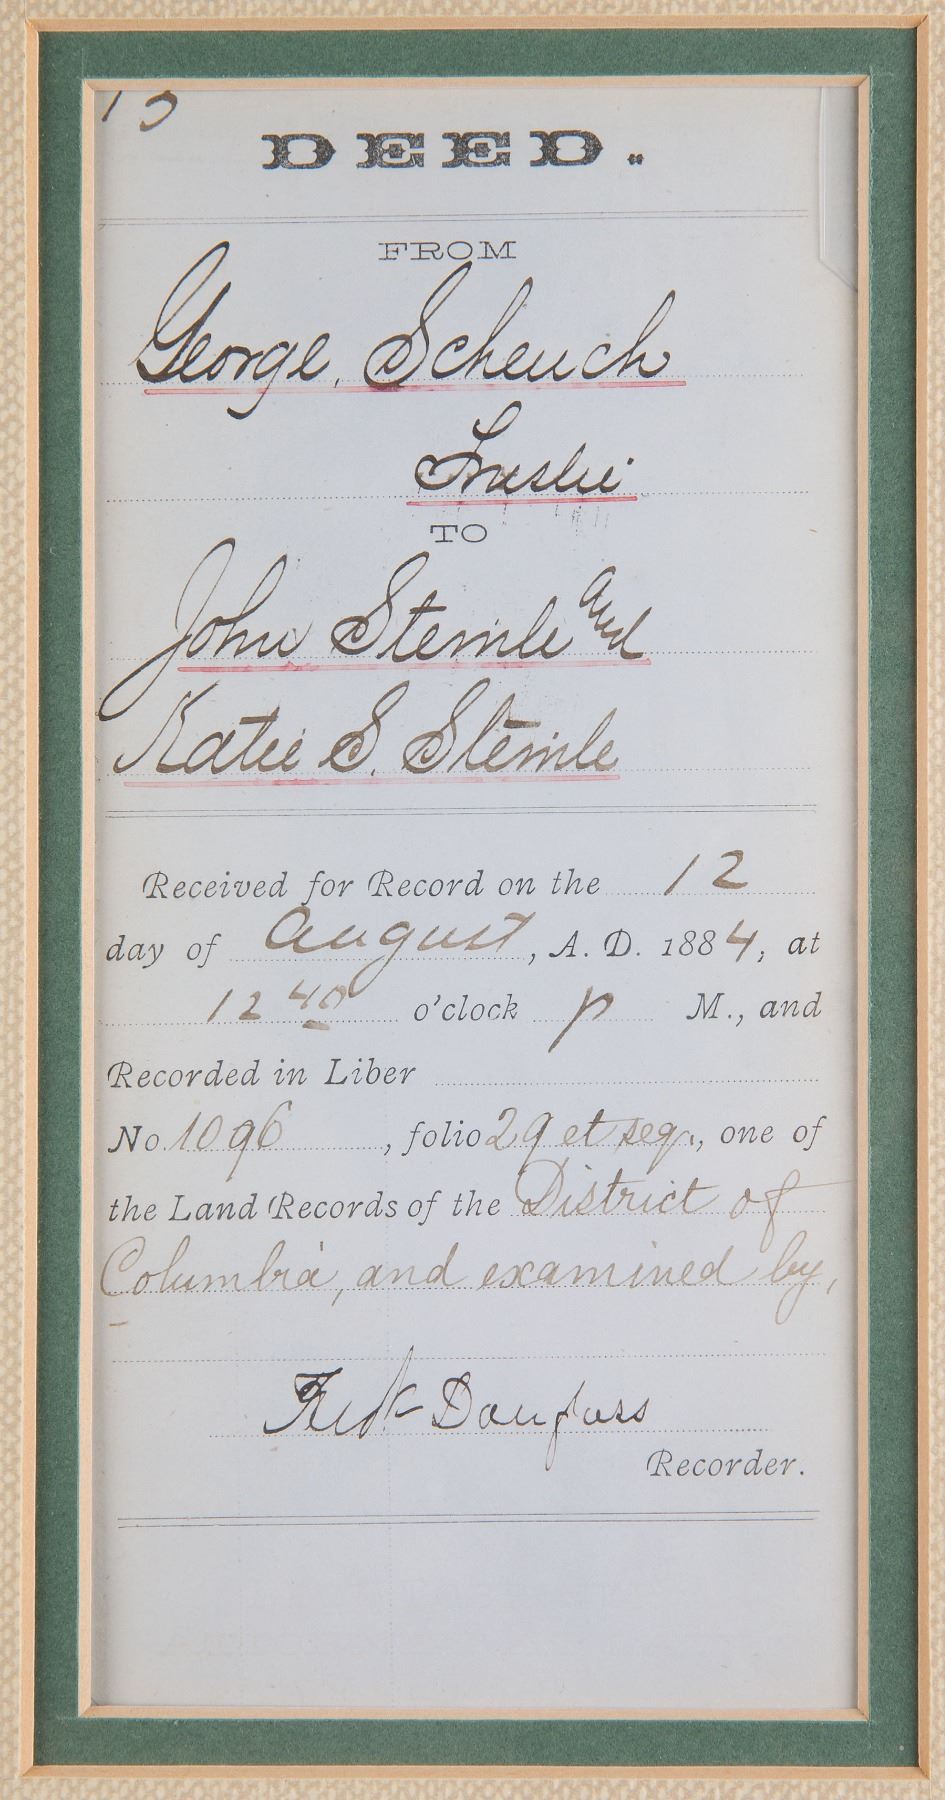 DEED.
FROM
George Scheuch
Trustee
TO
John Stemle and
Katie S. Stemle
Received for Record on the 12
day of August, A. D. 1884, at
12 40 o'clock p M., and
Recorded in Liber
No. 1096, folio 29 et seq., one of
the Land Records of the District of
Columbia, and examined by,
Fredk Douglass
Recorder.